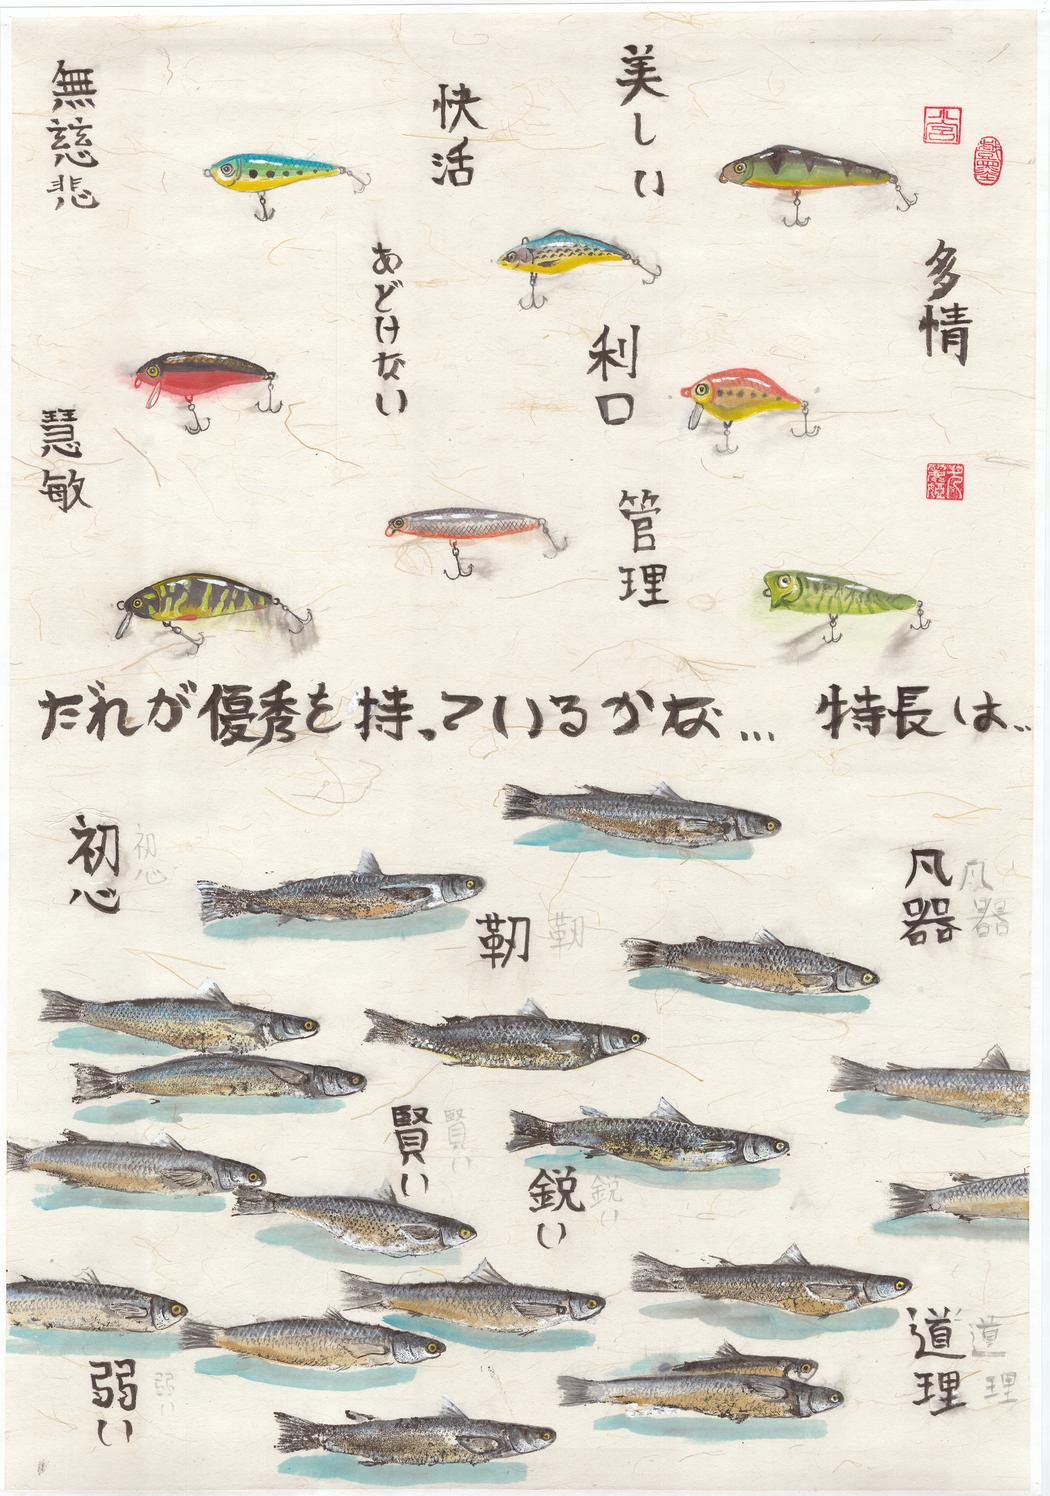 無慈悲
快活
美しい
多情
あどけない
利口
慧敏
管理
だれが優秀を持っているかな... 特長は..
初心
初心
凡器
凡器
靭
靭
賢い
賢い
鋭い
鋭い
道理
道理
弱い
弱い